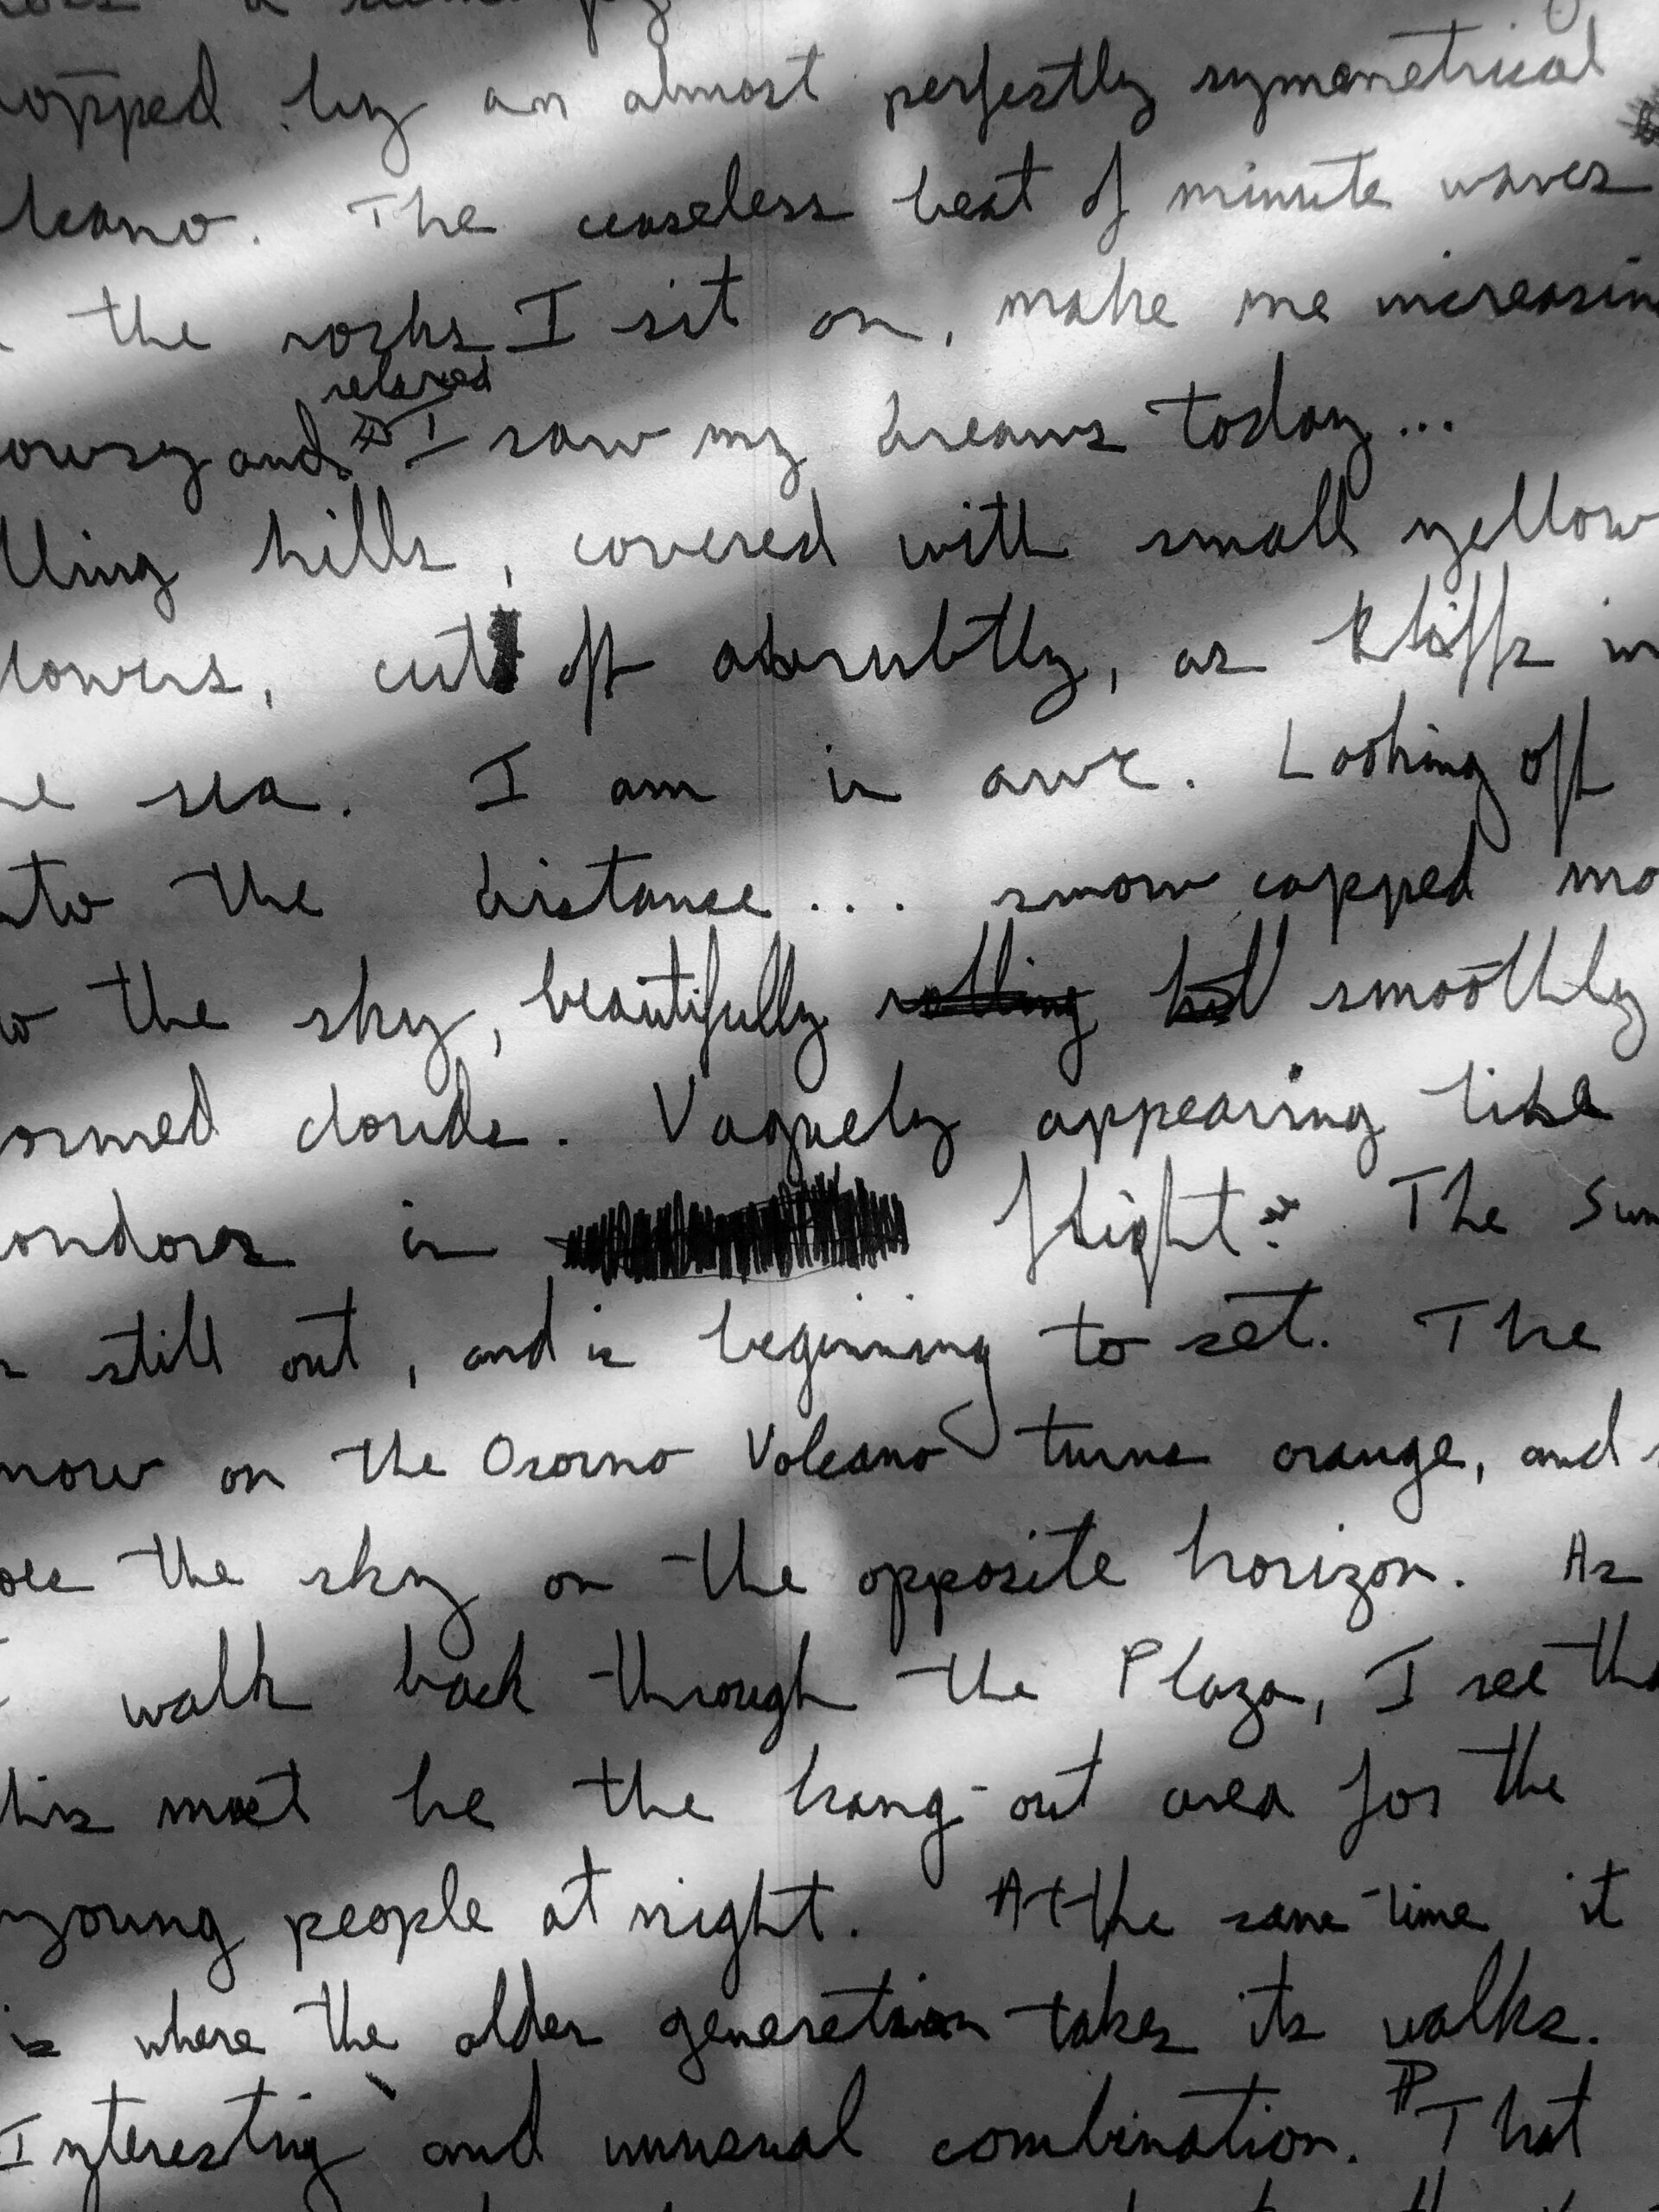 opped by an almost perfectly symmetrical
lcano. The ceaseless beat of minute waves
the rocks I sit on, make me increasin
relaxed
owsy and I saw my dreams today...
lling hills, covered with small yellow
lowers, cut off abrubtly, as kliffs in
he sea. I am in awe. Looking off
nto the distance... snow capped mo
to the sky, beautifully rolling hil smoothly
ormed clouds. Vaguely appearing like
ondors in flight. The Sun
still out, and is beginning to set. The
now on the Osorno Volcano turns orange, and s
oes the sky on the opposite horizon. As
I walk back through the Plaza, I see tha
this must be the hang-out area for the
young people at night. At the same time it
is where the older generation takes its walks.
Interesting and unusual combination. That